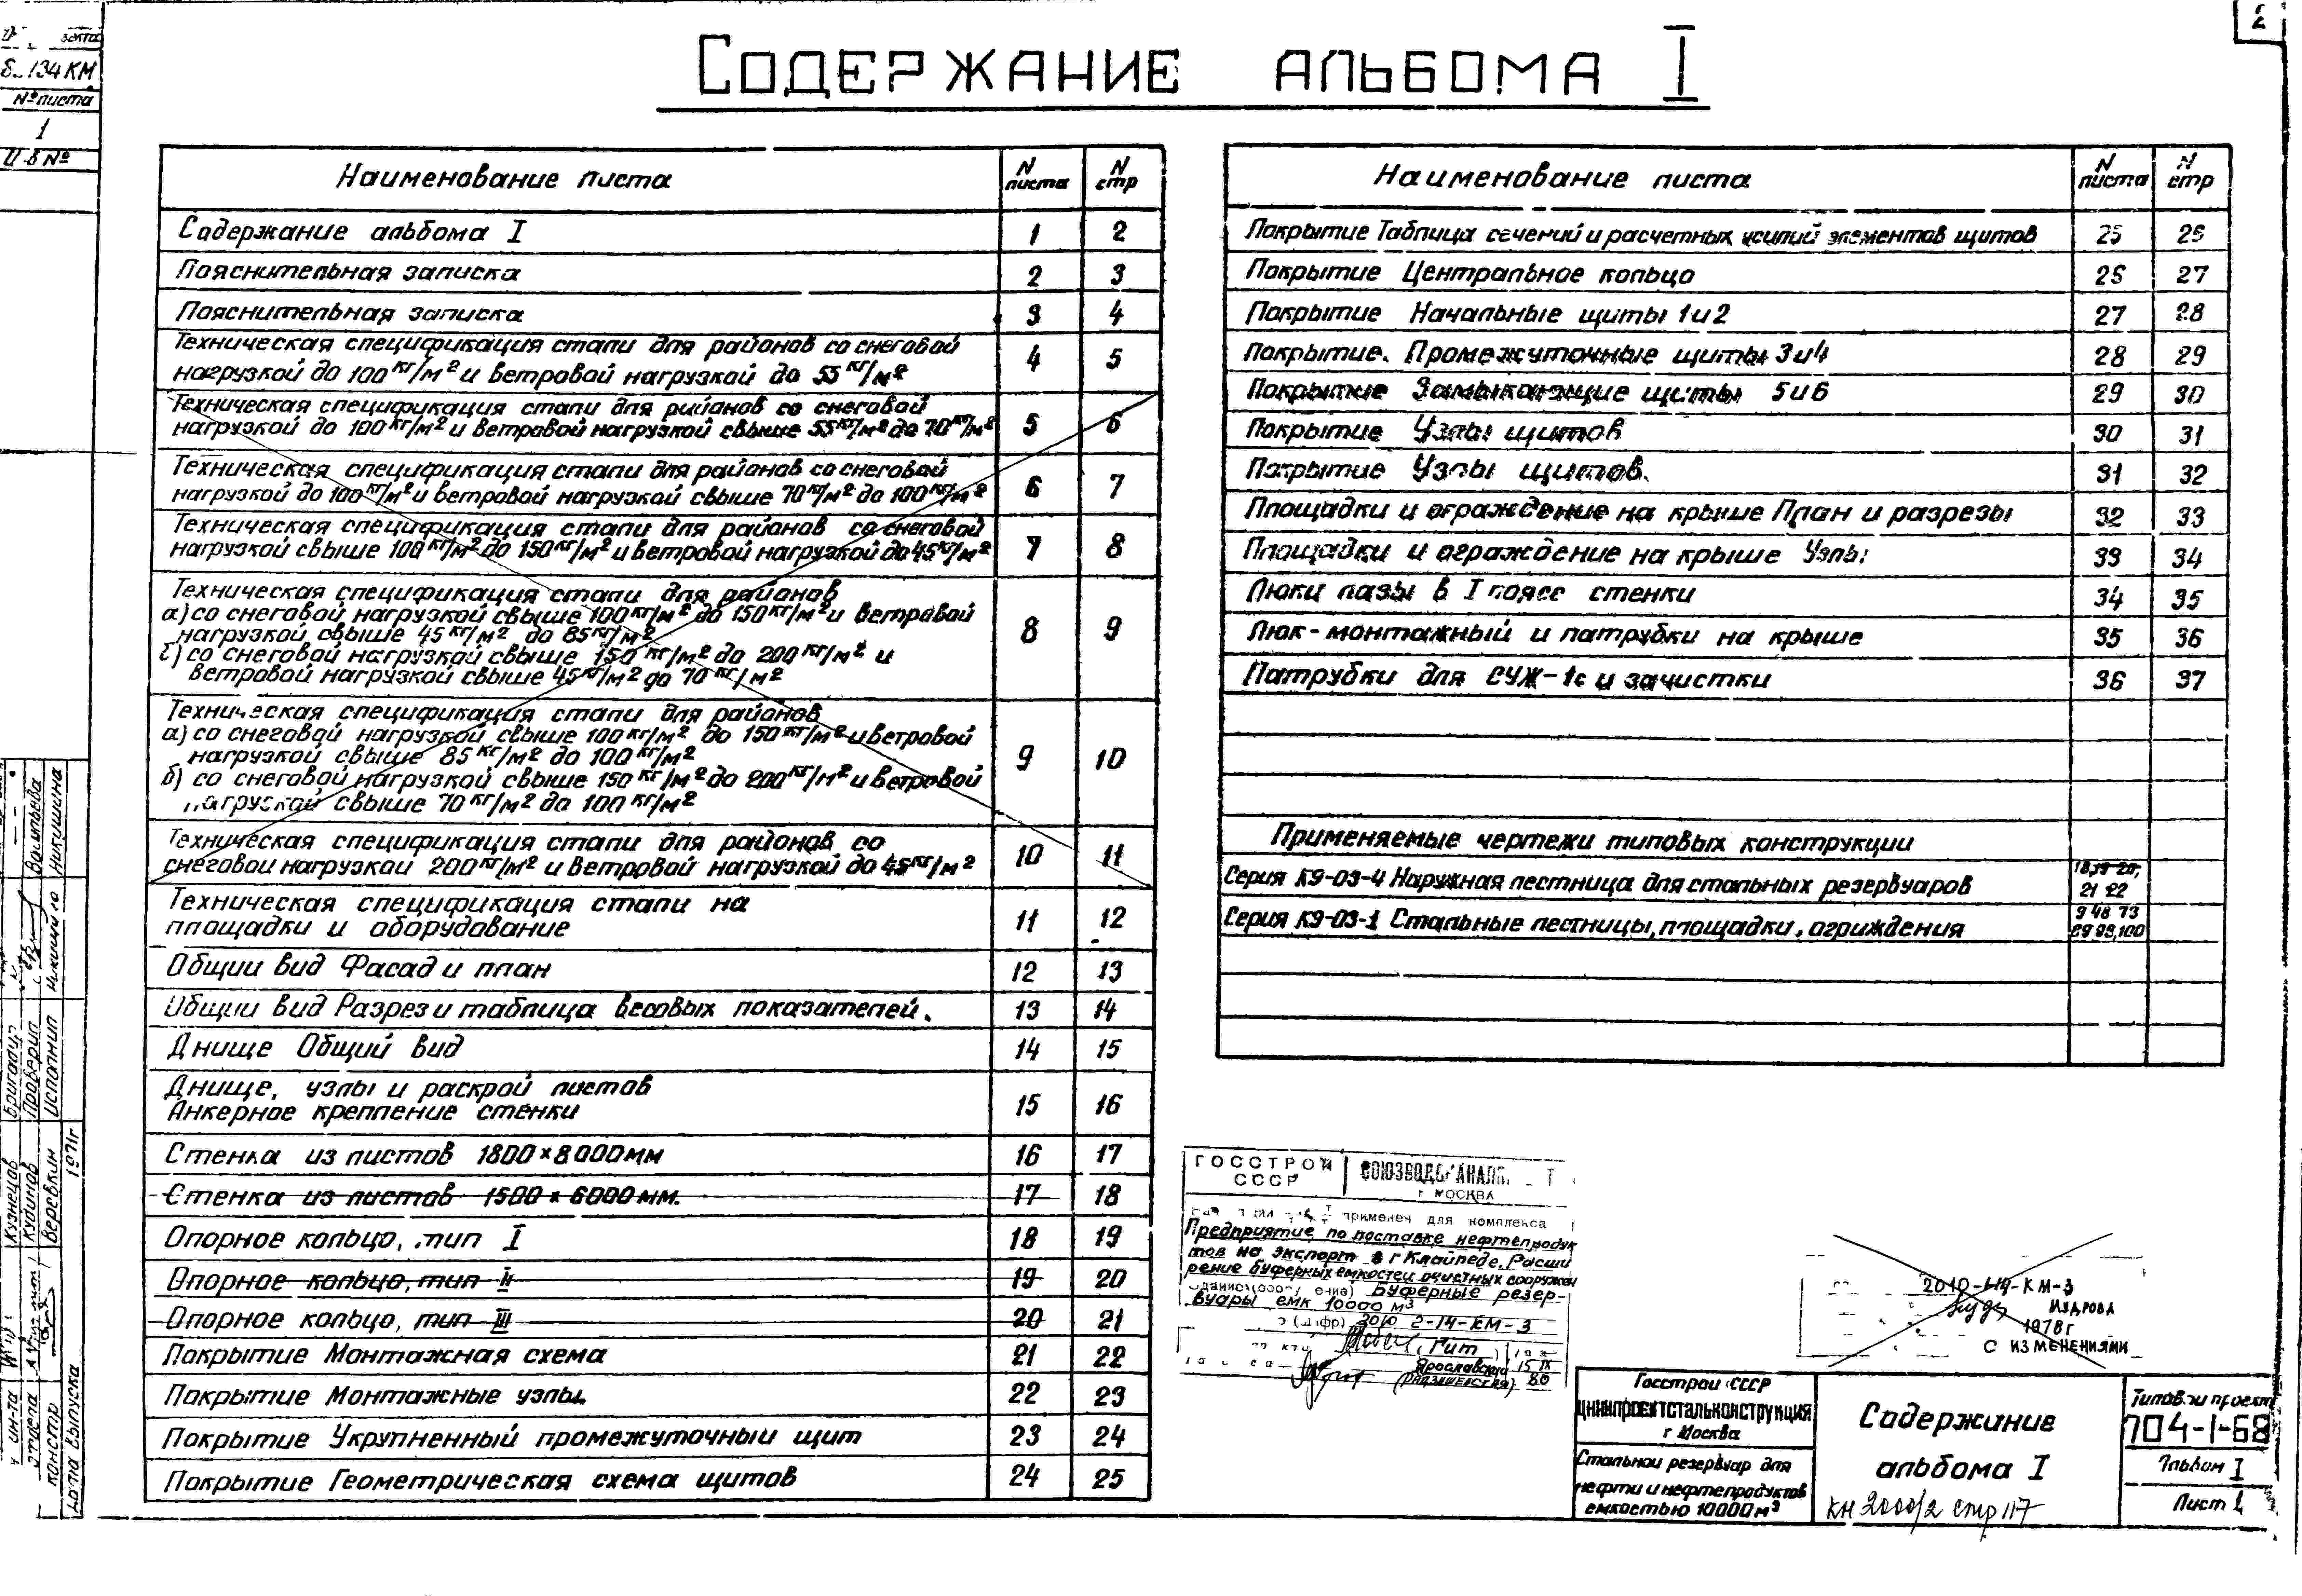 2
Содержание альбома I
зекта
134 КМ
№ листа
1
Наименование листа | N листа | N стр
Содержание альбома I | 1 | 2
Пояснительная записка | 2 | 3
Пояснительная записка | 3 | 4
Техническая спецификация стали для районов со снеговой
нагрузкой до 100 кг/м² и ветровой нагрузкой до 55 кг/м² | 4 | 5
Техническая спецификация стали для районов со снеговой
нагрузкой до 100 кг/м² и ветровой нагрузкой свыше 55 кг/м² до 70 кг/м² | 5 | 6
Техническая спецификация стали для районов со снеговой
нагрузкой до 100 кг/м² и ветровой нагрузкой свыше 70 кг/м² до 100 кг/м² | 6 | 7
Техническая спецификация стали для районов со снеговой
нагрузкой свыше 100 кг/м² до 150 кг/м² и ветровой нагрузкой до 45 кг/м² | 7 | 8
Техническая спецификация стали для районов
а) со снеговой нагрузкой свыше 100 кг/м² до 150 кг/м² и ветровой
нагрузкой свыше 45 кг/м² до 85 кг/м²
б) со снеговой нагрузкой свыше 150 кг/м² до 200 кг/м² и
ветровой нагрузкой свыше 45 кг/м² до 70 кг/м² | 8 | 9
Техническая спецификация стали для районов
а) со снеговой нагрузкой свыше 100 кг/м² до 150 кг/м² и ветровой
нагрузкой свыше 85 кг/м² до 100 кг/м²
б) со снеговой нагрузкой свыше 150 кг/м² до 200 кг/м² и ветровой
нагрузкой свыше 70 кг/м² до 100 кг/м² | 9 | 10
Техническая спецификация стали для районов со
снеговой нагрузкой 200 кг/м² и ветровой нагрузкой до 45 кг/м² | 10 | 11
Техническая спецификация стали на
площадки и оборудование | 11 | 12
Общий вид Фасад и план | 12 | 13
Общий вид Разрез и таблица весовых показателей. | 13 | 14
Днище Общий вид | 14 | 15
Днище, узлы и раскрой листов
Анкерное крепление стенки | 15 | 16
Стенка из листов 1800×8000мм | 16 | 17
Стенка из листов 1500 × 6000 мм. | 17 | 18
Опорное кольцо, тип I | 18 | 19
Опорное кольцо, тип II | 19 | 20
Опорное кольцо, тип III | 20 | 21
Покрытие Монтажная схема | 21 | 22
Покрытие Монтажные узлы. | 22 | 23
Покрытие Укрупненный промежуточный щит | 23 | 24
Покрытие Геометрическая схема щитов | 24 | 25
Наименование листа | N листа | N стр
Покрытие Таблица сечений и расчетных усилий элементов щитов | 25 | 26
Покрытие Центральное кольцо | 26 | 27
Покрытие Начальные щиты 1 и 2 | 27 | 28
Покрытие. Промежуточные щиты 3 и 4 | 28 | 29
Покрытие Замыкающие щиты 5 и 6 | 29 | 30
Покрытие Узлы щитов | 30 | 31
Покрытие Узлы щитов. | 31 | 32
Площадки и ограждение на крыше План и разрезы | 32 | 33
Площадки и ограждение на крыше Узлы | 33 | 34
Люки лазы в I поясе стенки | 34 | 35
Люк-монтажный и патрубки на крыше | 35 | 36
Патрубки для СУЖ-1с и зачистки | 36 | 37
Применяемые чертежи типовых конструкции
Серия КЭ-03-4 Наружная лестница для стальных резервуаров | 18,19 20, 21 22
Серия КЭ-03-1 Стальные лестницы, площадки, ограждения | 9 48 73 99,100
ГОССТРОЙ СССР
СОЮЗВОДОКАНАЛ
г МОСКВА
применен для комплекса
Предприятие по поставке нефтепродук
тов на экспорт в г Клайпеде. Расши
рение буферных емкостей очистных сооружен
Буферные резер-
вуары емк 10000 м³
(шифр) 2010 2-14-КМ-3
Гит
Ярославский 15 IX
80
2010-14-КМ-3
1978г
С ИЗМЕНЕНИЯМИ
Госстрой СССР
ЦНИИПРОЕКТСТАЛЬКОНСТРУКЦИЯ
г Москва
Стальной резервуар для
нефти и нефтепродуктов
емкостью 10000 м³
Содержание
альбома I
КН 2000/2 стр 117
Типовой проект
704-1-68
Альбом I
Лист 1
Васильева
Никушина
Бригадир
Проверил
Исполнил
Кузнецов
Кудинов
Веревкин
1971г
ин-та
отдела
констр
Дата выпуска